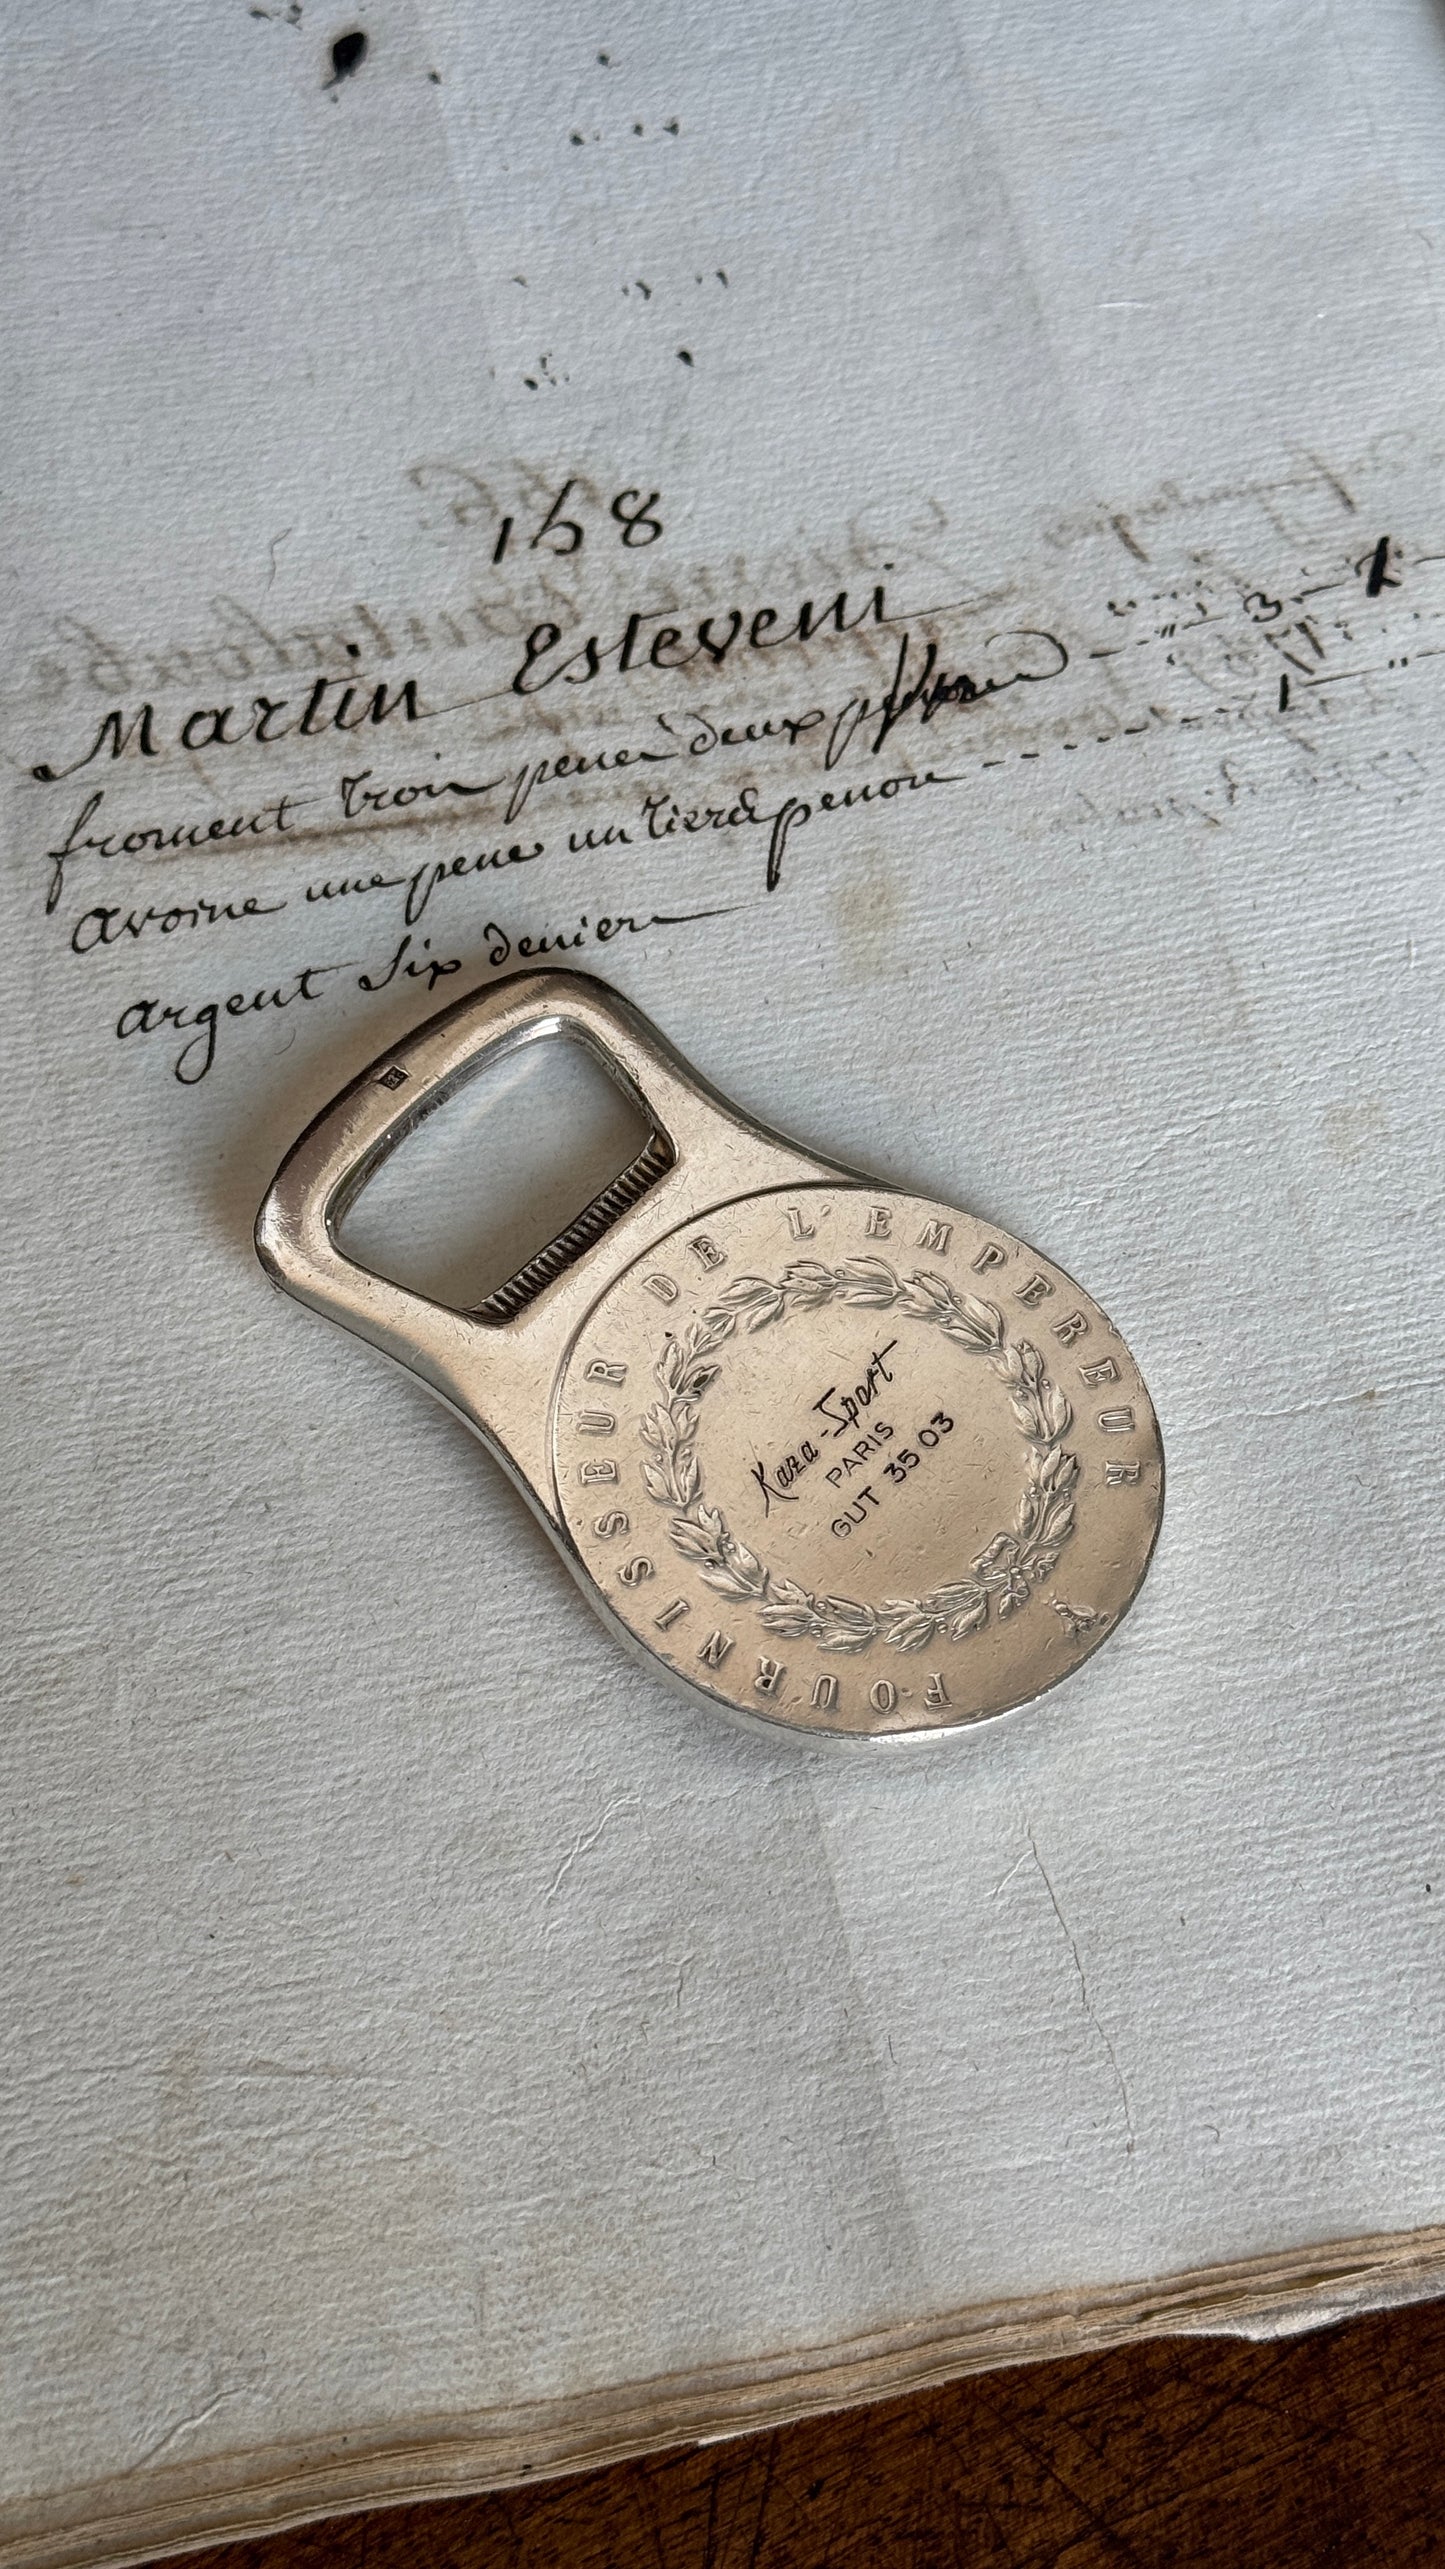 148
Martin Esteveni
froment trois penes deux
avoine une pene un tiers penon
argent six deniers
3.
1
FOURNISSEUR DE L'EMPEREUR
Kaza-Sport
PARIS
GUT 35 03